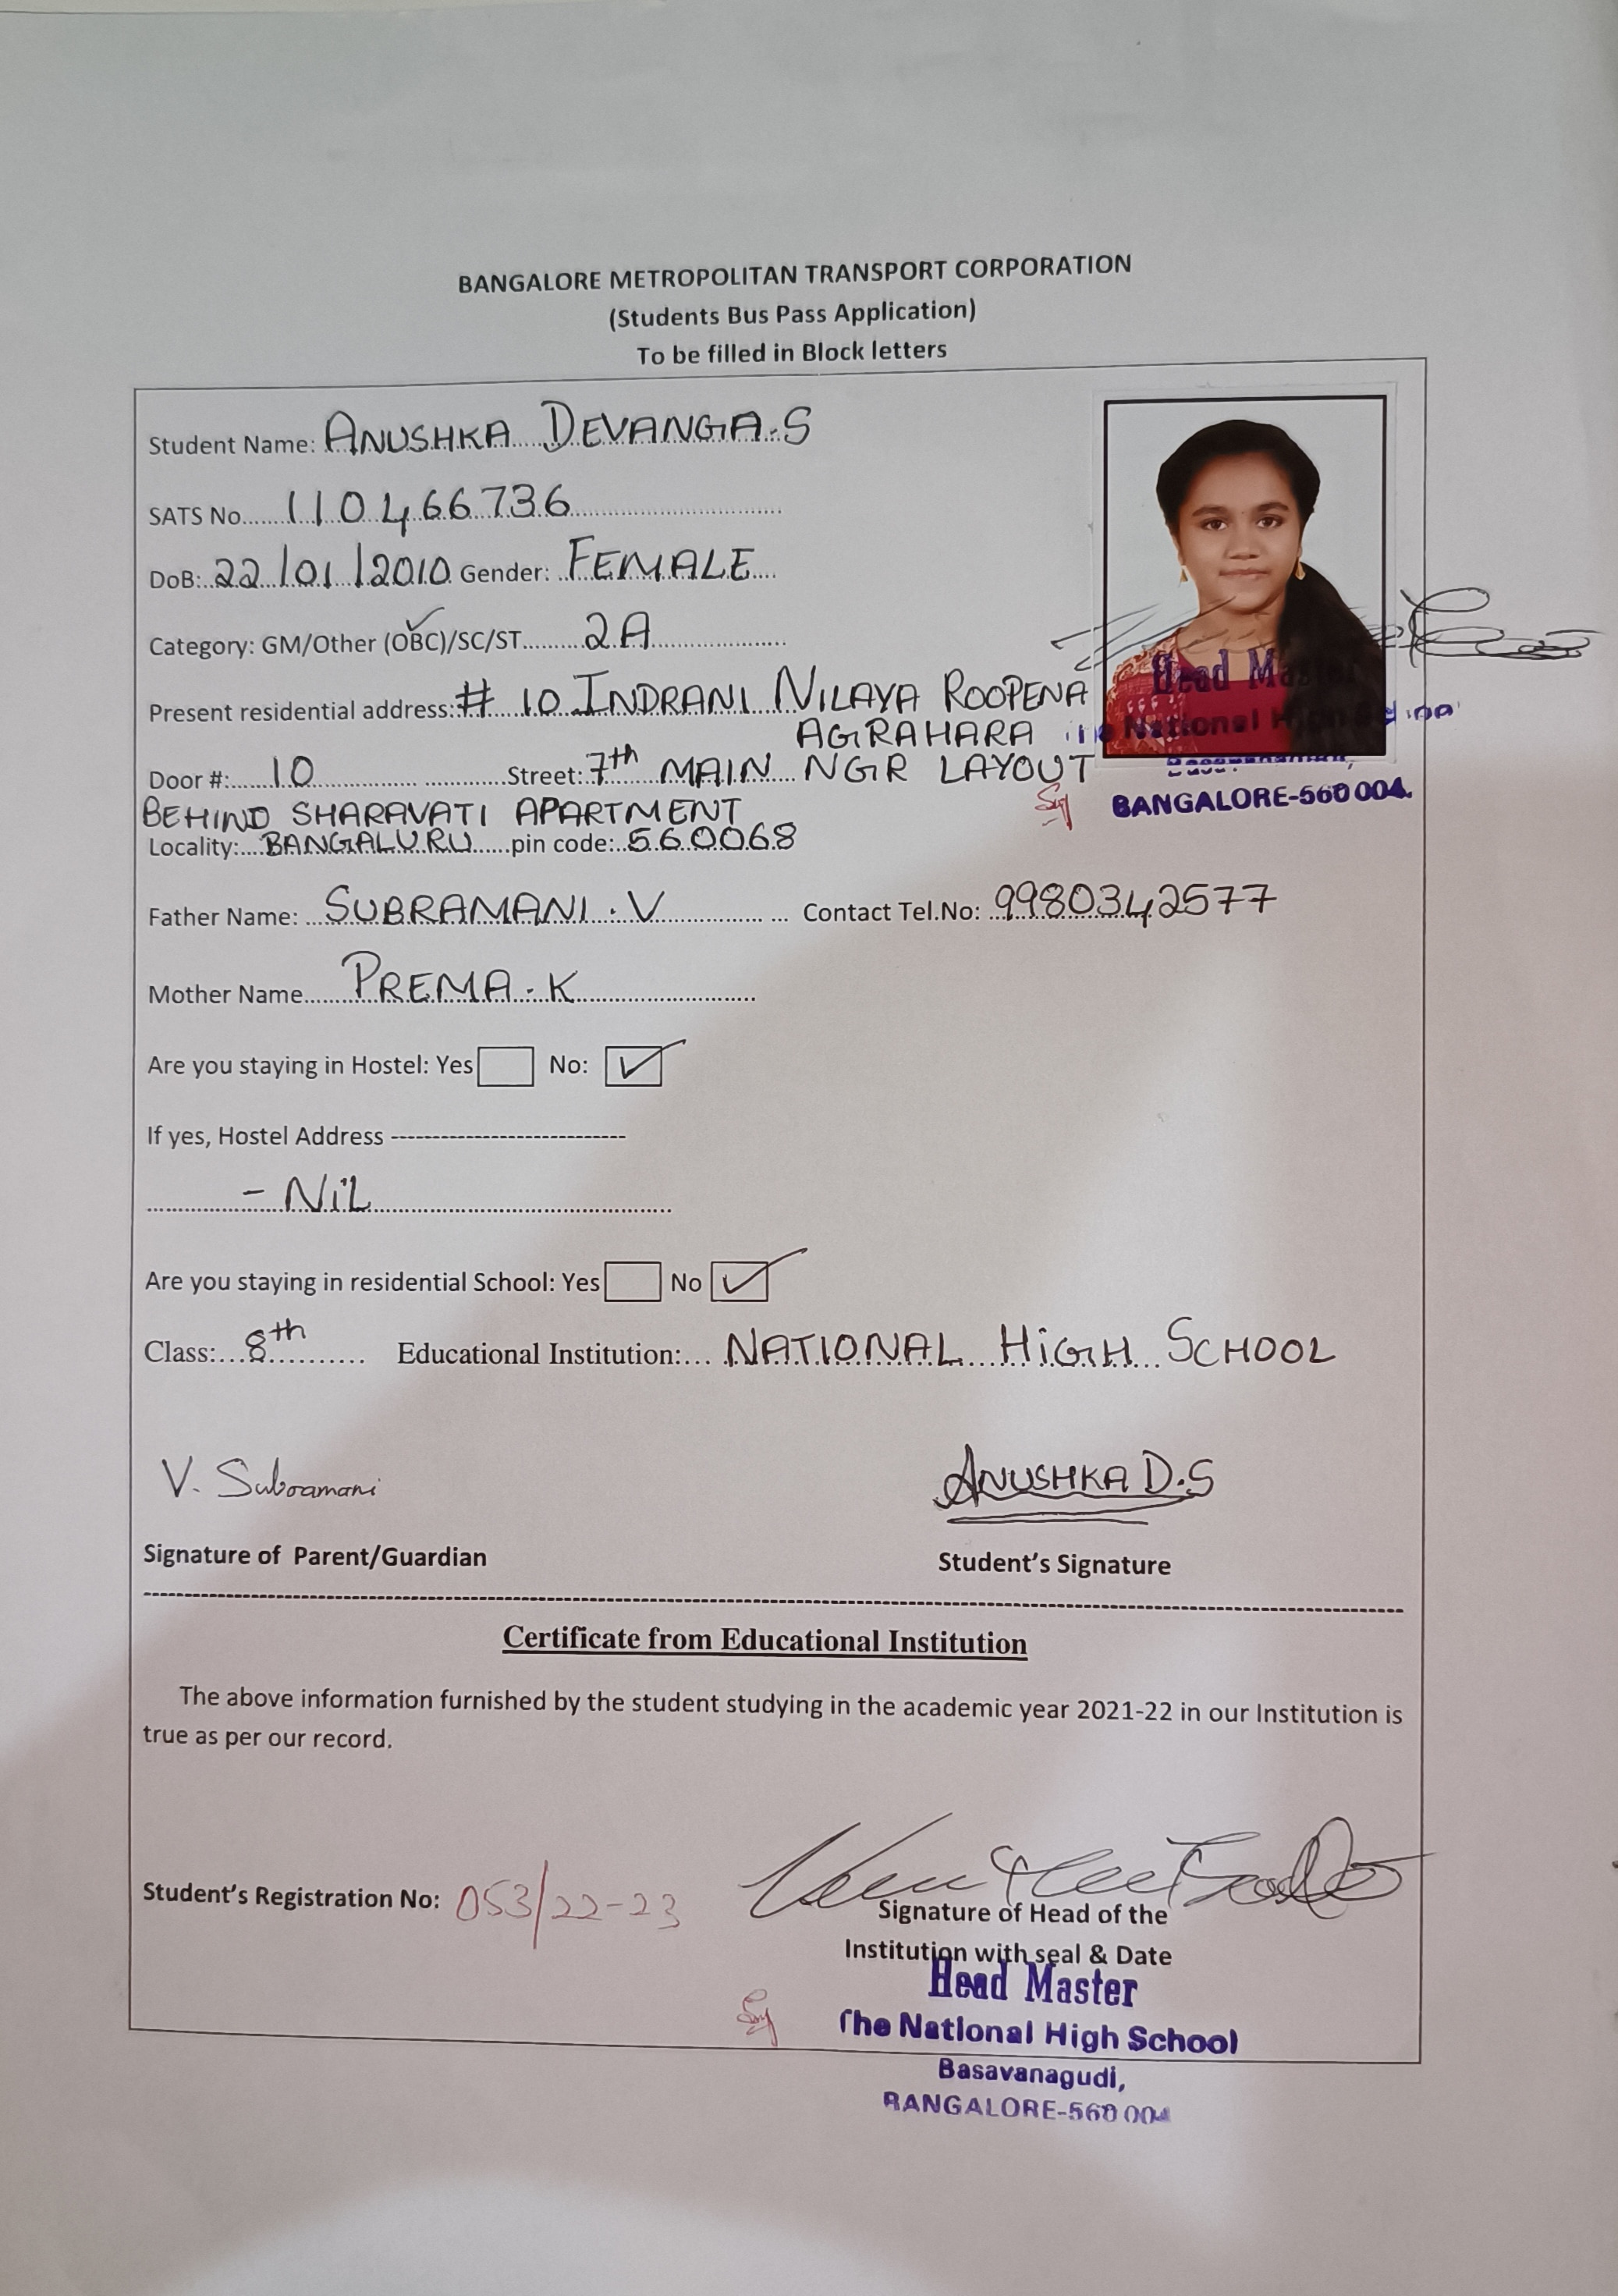 BANGALORE METROPOLITAN TRANSPORT CORPORATION
(Students Bus Pass Application)
To be filled in Block letters
Student Name: ANUSHKA DEVANGA.S
SATS No. 110466736
DoB: 22/01/2010 Gender: FEMALE
Category: GM/Other (OBC)/SC/ST 2A
Present residential address: # 10 INDRANI NILAYA ROOPENA
AGRAHARA
Door #: 10 Street: 7th MAIN NGR LAYOUT
BEHIND SHARAVATI APARTMENT
Locality: BANGALURU pin code: 560068
Head Master
National High
BANGALORE-560 004.
Father Name: SUBRAMANI.V Contact Tel.No: 9980342577
Mother Name PREMA.K
Are you staying in Hostel: Yes No: ✓
If yes, Hostel Address ----------------------------
- NiL
Are you staying in residential School: Yes No ✓
Class: 8th Educational Institution: NATIONAL HiGH SCHOOL
V. Subramani ANUSHKA D.S
Signature of Parent/Guardian Student's Signature
Certificate from Educational Institution
The above information furnished by the student studying in the academic year 2021-22 in our Institution is
true as per our record.
Student's Registration No: 053/22-23
Signature of Head of the
Institution with seal & Date
Head Master
The National High School
Basavanagudi,
BANGALORE-560 004